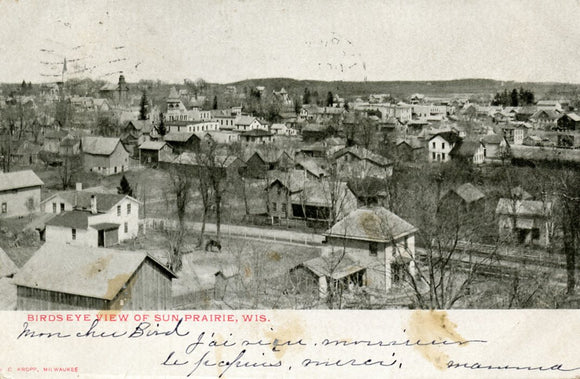 BIRDSEYE VIEW OF SUN PRAIRIE, WIS.
Mon cher Bird J'ai reçu, monsieur
le papins, merci, mamma
C. KROPF, MILWAUKEE